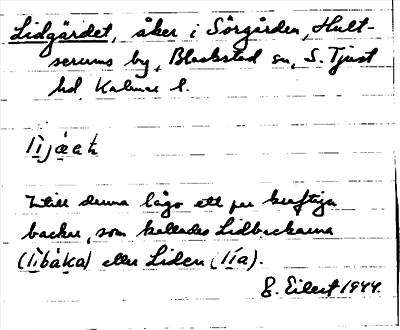 Lidgärdet, åker i Sörgården, Hult-
serums by, Blackstad sn, S. Tjust
hd, Kalmar l.
lìjǻeṯ
Intill denna lågo ett par kraftiga
backar, som kallades Lidbackarna
(lìbåka) eller Liden (lía).
E. Eilert 1944.